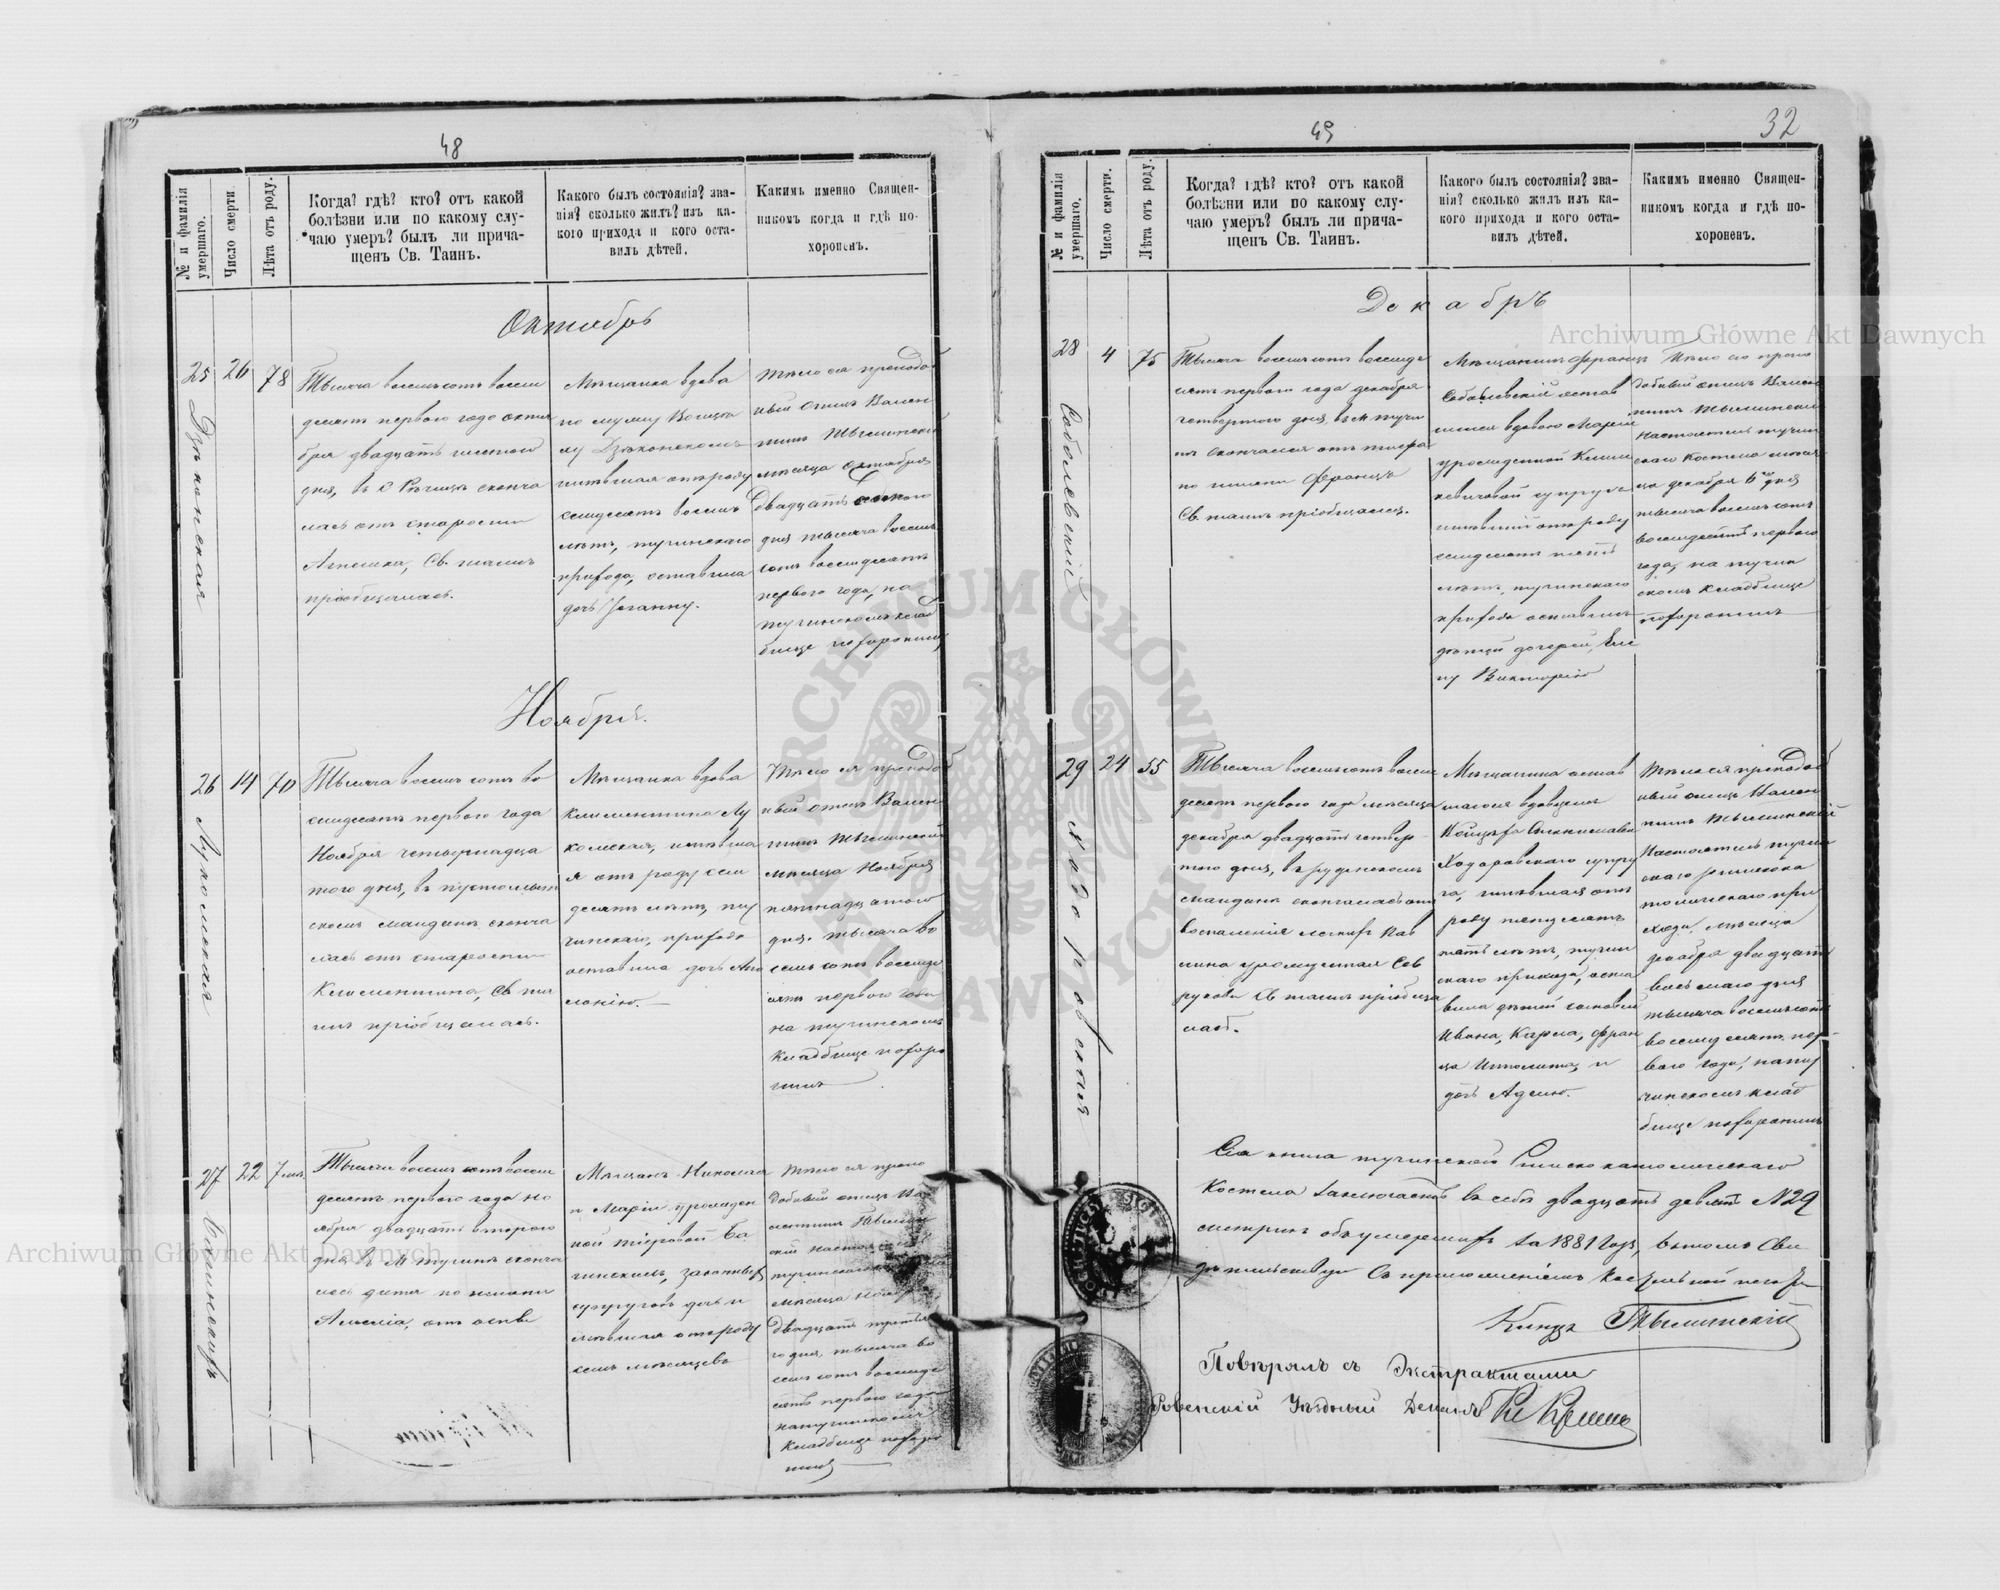 48
№ и фамилія умершаго.
Число смерти.
Лѣта отъ роду.
Когда? гдѣ? кто? отъ какой
болѣзни или по какому слу-
чаю умеръ? былъ ли прича-
щенъ Св. Таинъ.
Какого былъ состоянія? зва-
нія? сколько жилъ? изъ ка-
кого прихода и кого оста-
вилъ дѣтей.
Какимъ именно Священ-
никомъ когда и гдѣ по-
хороненъ.
Октябрь
25
Дзяконская
26
78
Тысяча восемьсотъ восем
десятъ перваго года октя
бря двадцать шестого
дня, въ
сконча
лась отъ старости
Агнешка, Св. таинъ
пріобщалась.
Мѣщанка вдова
по мужу
Дзяконскомъ
жившая отъ роду
семдесятъ восемъ
лѣтъ, тучинскаго
прихода, оставила
дочь Іоганну.
Тѣло ея преподоб
ный отецъ Вален
тинъ Тысминскій
мѣсяца Октября
двадцать седмого
дня тысяча восемь
сотъ восемдесятъ
перваго года, на
тучинскомъ клад
бище похоронилъ
Ноября.
26
Лукомская
14
70
Тысяча восемьсотъ во
семдесятъ перваго года
Ноября четырнадца
того дня, въ
сконча
лась отъ старости
Клементина, Св. та
инъ пріобщалась.
Мѣщанка вдова
Клементина Лу
комская, жившая
отъ роду сем
десятъ лѣтъ, ту
чинскаго, прихода
оставила дочь Апо
лонію.
Тѣло ея преподоб
ный отецъ Вален
тинъ Тысминскій
мѣсяца Ноября
пятнадцатого
дня. тысяча во
семьсотъ восемде
сятъ перваго года
на тучинскомъ
кладбище похоро
нилъ
27
22
7 мѣс.
Тысяча восемьсотъ восем
десятъ перваго года но
ября двадцать второго
дня въ М. Тучинѣ сконча
лось дитя по имени
Амелія, отъ оспы
Мѣщанъ Николая
и Маріи урожден
ной
законныхъ
супруговъ дочь
жившая отъ роду
семь мѣсяцевъ
Тѣло ея препо
добный отецъ Ва
лентинъ Тысмин
скій настоятель
тучинскаго
мѣсяца Ноября
двадцать третья
го дня, тысяча во
семьсотъ восемде
сятъ перваго года
на тучинскомъ
кладбище похоро
нилъ
49
32
№ и фамилія умершаго.
Число смерти.
Лѣта отъ роду.
Когда? гдѣ? кто? отъ какой
болѣзни или по какому слу-
чаю умеръ? былъ ли прича-
щенъ Св. Таинъ.
Какого былъ состоянія? зва-
нія? сколько жилъ изъ ка-
кого прихода и кого оста-
вилъ дѣтей.
Какимъ именно Священ-
никомъ когда и гдѣ по-
хороненъ.
Декабрь
28
Соболевскій
4
75
Тысяча восемьсотъ восемде
сятъ перваго года декабря
четвертого дня, въ М. Тучи
нѣ скончался отъ тифа
по имени Францъ
Св. таинъ пріобщался.
Мѣщанинъ Францъ
Соболевскій остав
шійся вдовою Маріи
урожденной Клим
кевичовой супругъ
жившій отъ роду
семдесятъ пять
лѣтъ, тучинскаго
прихода оставилъ
дѣтей дочерей,
Викторію
Тѣло его препо
добный отецъ Вален
тинъ Тысминскій
настоятель тучин
скаго костела мѣся
ца декабря 6го дня
тысяча восемьсотъ
восемдесятъ перваго
года, на тучин
скомъ кладбище
похоронилъ
29
Ходоровская
24
55
Тысяча восемьсотъ восем
десятъ перваго года мѣсяца
декабря двадцать четвер-
того дня, въ
скончалась отъ
воспаленія легкихъ Пав
лина урожденная
Св. таинъ пріобща
лась.
Мѣщанина остав
шагося вдовцемъ
Станислава
Ходоровскаго супру
га, жившая отъ
роду пятдесятъ
пять лѣтъ, тучин
скаго прихода, оста
вила дѣтей сыновей
Ивана, Карла, Фран
ца Ипполита, и
дочь Аделю.
Тѣло ея преподоб
ный отецъ Вален
тинъ Тысминскій
Настоятель тучин
скаго римско ка
толическаго при
хода, мѣсяца
декабря двадцать
восьмаго дня
тысяча восемьсотъ
восемдесятъ пер-
ваго года, на ту
чинскомъ клад
бище похоронилъ
Сія книга тучинскаго Римско католическаго
Костела заключаетъ въ себѣ двадцать девять №29
метрикъ объ умершихъ за 1881 годъ, въ томъ Сви
дѣтельствую Съ приложеніемъ костельной печати
Ксендзъ Тысминскій
Повѣрялъ съ Экстрактами
Ровенскій Уѣздный Деканъ
Archiwum Główne Akt Dawnych
Archiwum Główne Akt Dawnych
ARCHIWUM GŁÓWNE AKT DAWNYCH